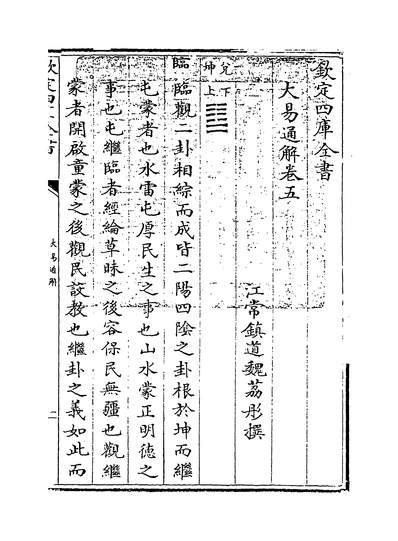 欽定四庫全書
大易通解卷五
江常鎮道魏荔彤撰
兌下
坤上
臨臨觀二卦相綜而成皆二陽四陰之卦根於坤而繼
屯蒙者也水雷屯厚民生之事也山水蒙正明徳之
事也屯繼臨者經綸草昧之後容保民無疆也觀繼
蒙者開啟童蒙之後觀民設教也繼卦之義如此而
欽定四庫全書
大易通解